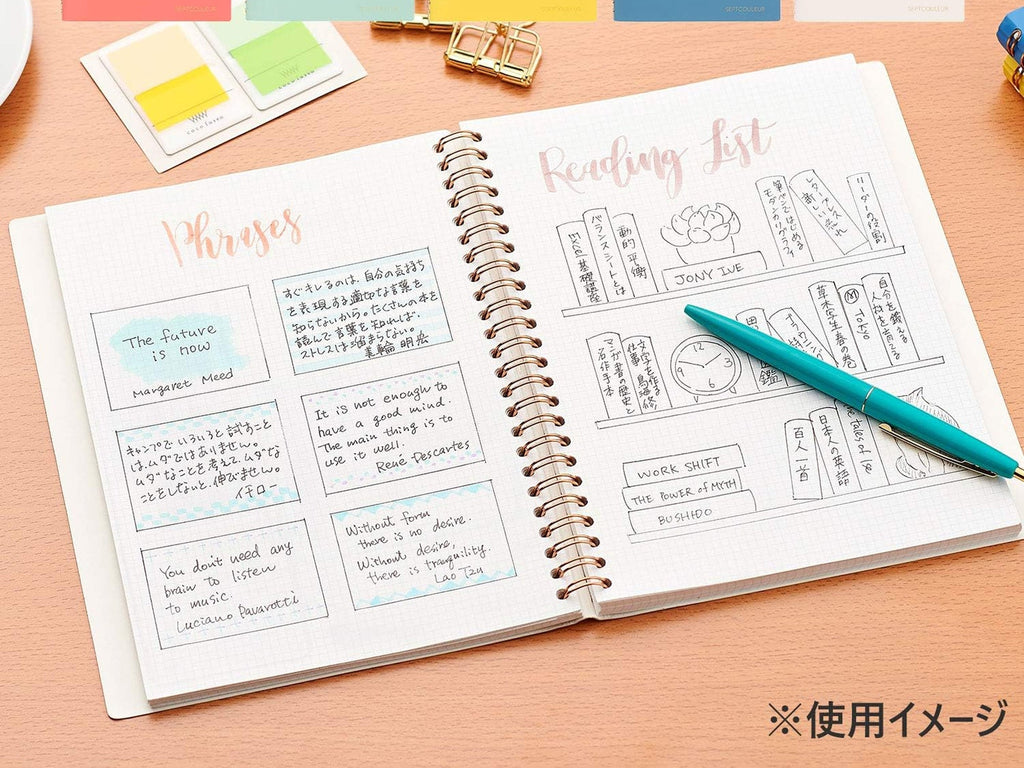 SEPTCOULEUR
SEPTCOULEUR
SEPTCOULEUR
SEPTCOULEUR
Phrases
The future
is now
Margaret Meed
すぐキレるのは、自分の気持ち
を表現する適切な言葉を
知らないから。たくさんの本を
読んで言葉を知れば、
ストレスは溜まらない。
美輪 明宏
キャンプでいろいろと試すこと
は、ムダではありません。
ムダなことを考えて、ムダな
ことをしないと、伸びません。
イチロー
It is not enough to
have a good mind.
The main thing is to
use it well.
René Descartes
You don't need any
brain to listen
to music.
Luciano Pavarotti
Without form
there is no desire.
Without desire,
there is tranquility.
Lao Tzu
Reading List
Excel 基礎講座
バランスシートとは
動的平衡
JONY IVE
筆ペンではじめる
モダンカリグラフィ
レタープレス
新しい流れ
リーダーの役割
マンガ書の歴史と
名作手本
文字を作る
仕事 鳥海修
鑑
草木学生春の巻
TOKYO
自分を鍛える
人材を育てる
WORK SHIFT
THE POWER of MYTH
BUSHIDO
百人一首
日本人の英語
※使用イメージ